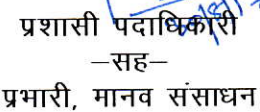 प्रशासी पदाधिकारी
–सह–
प्रभारी, मानव संसाधन